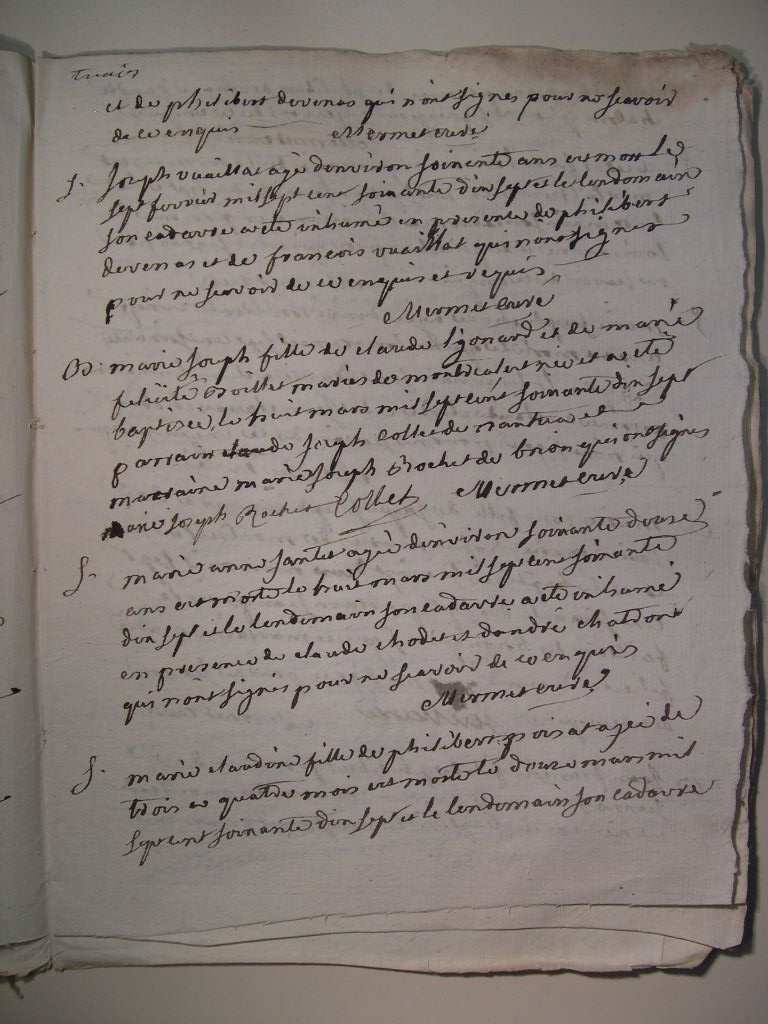 troais
et de philibert devenas qui nont signes pour ne scavoir
de ce enquis Mermet curé
S. joseph vuaillat agé denviron soixante ans est mort le
sept fevrier mil sept cent soixante dix sept et le lendemain
son cadavre a eté inhumé en presence de philibert
devenas et de francois vuaillat qui nont signes
pour ne scavoir de ce enquis et requis
Mermet curé
B. marie joseph fille de claude lyonard et de marie
felicité Boillet mariés de montrealest née et a eté
baptisée le huit mars mil sept cent soixante dix sept
parrain claude joseph Collet de nantua et
marraine marie joseph Rochet de brion qui ont signes
marie joseph Rochet Collet Mermet curé
S. marie anne santet agée denviron soixante douze
ans est morte le huit mars mil sept cent soixante
dix sept et le lendemain son cadavre a eté inhumé
en presence de claude chodet et dandré chatdon
qui nont signes pour ne scavoir de ce enquis
Mermet curé
S. marie claudine fille de philibert poisat agée de
trois a quatre mois est morte le douze mars mil
sept cent soixante dix sept et le lendemain son cadavre